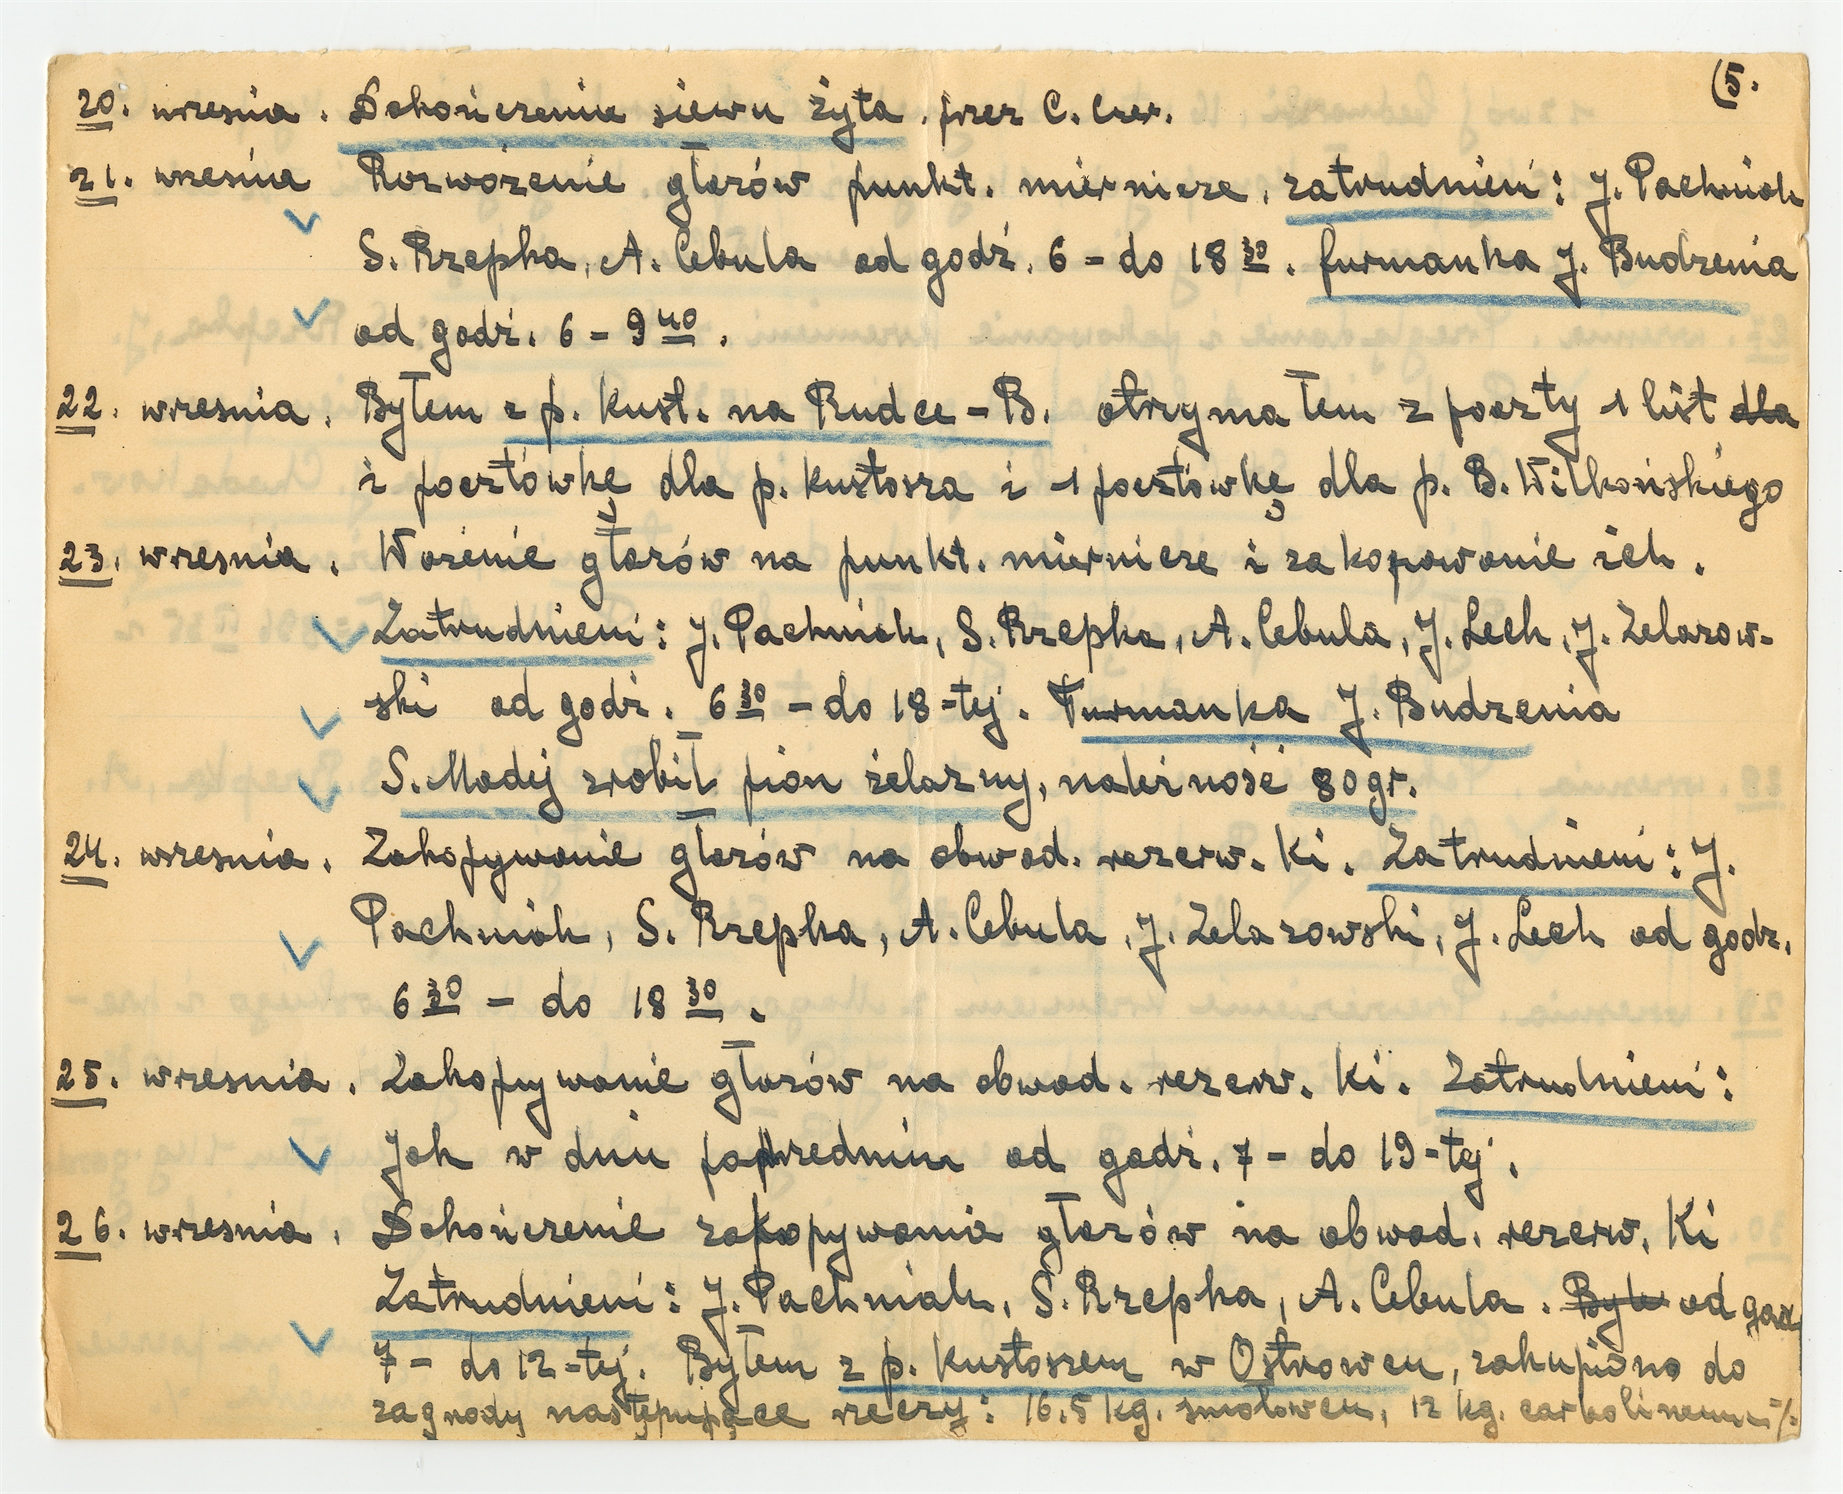 (5.
20. wresnia. Dokończenie siewu żyta. przez C. Czer.
21. wresnia Rozwożenie głazów punkt. miernicze, zatrudnieni: J. Pachniak
S. Rzepka, A. Cebula od godź. 6 - do 18 30. furmanka J. Budzenia
od godź. 6 - 9 40.
22. wresnia. Byłem z p. Kust. na Rudce - B. otrzymałem z poczty 1 list dla
i pocztówkę dla p. Kustosza i 1 pocztówkę dla p. B. Witkońskiego
23. wresnia. Wożenie głazów na punkt. miernicze i zakopowanie ich.
Zatrudnieni: J. Pachniak, S. Rzepka, A. Cebula, J. Lech, J. Zelazow-
ski od godź. 6 30 - do 18-tej. Furmanka J. Budzenia
S. Madej zrobił pion żelazny, należność 80 gr.
24. wresnia. Zakopywanie głazów na obwod. rezerw. Ki. Zatrudnieni: J.
Pachniak, S. Rzepka, A. Cebula, J. Zelazowski, J. Lech od godz.
6 30 - do 18 30.
25. wresnia. Zakopywanie głazów na obwod. rezerw. Ki. Zatrudnieni:
Jak w dniu poprzednim od godź. 7 - do 19-tej.
26. wresnia. Dokończenie zakopywania głazów na obwod. rezerw. Ki
Zatrudnieni: J. Pachniak, S. Rzepka, A. Cebula. Był od godz
7 - do 12-tej. Byłem z p. Kustoszem w Ostrowcu, zakupiono do
zagrody następujące rzeczy: 16.5 kg. smołowcu, 12 kg. carbolineum ./.